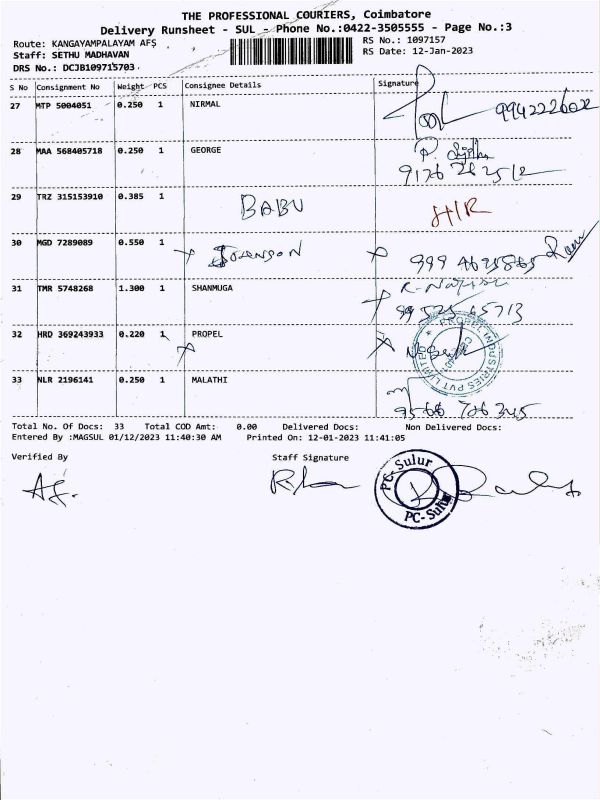 THE PROFESSIONAL COURIERS, Coimbatore
Delivery Runsheet - SUL - Phone No.:0422-3505555 - Page No.:3
Route: KANGAYAMPALAYAM AFS
RS No.: 1097157
Staff: SETHU MADHAVAN
RS Date: 12-Jan-2023
DRS No.: DCJB109715703
S No Consignment No Weight PCS Consignee Details Signature
27 MTP 5004051 0.250 1 NIRMAL
28 MAA 568405718 0.250 1 GEORGE
29 TRZ 315153910 0.385 1 BABU H/R
30 MGD 7289089 0.550 1
31 TMR 5748268 1.300 1 SHANMUGA
32 HRD 369243933 0.220 1 PROPEL
PROPEL INDUSTRIES PVT LIMITED
33 NLR 2196141 0.250 1 MALATHI
Total No. Of Docs: 33 Total COD Amt: 0.00 Delivered Docs: Non Delivered Docs:
Entered By :MAGSUL 01/12/2023 11:40:30 AM Printed On: 12-01-2023 11:41:05
Verified By Staff Signature
PC-Sulur
PC-Sulur